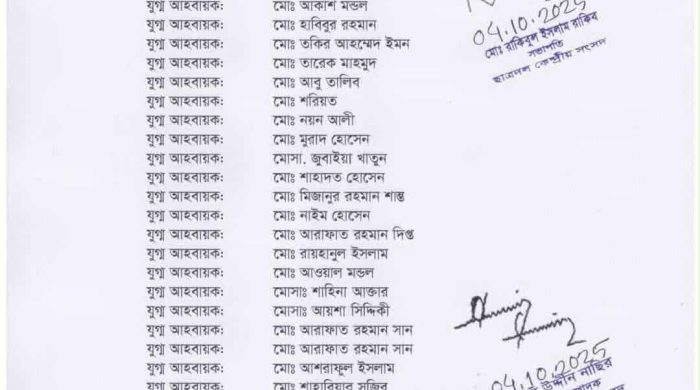 যুগ্ম আহবায়ক: মোঃ আকাশ মন্ডল
যুগ্ম আহবায়ক: মোঃ হাবিবুর রহমান
যুগ্ম আহবায়ক: মোঃ তকির আহম্মেদ ইমন
যুগ্ম আহবায়ক: মোঃ তারেক মাহমুদ
যুগ্ম আহবায়ক: মোঃ আবু তালিব
যুগ্ম আহবায়ক: মোঃ শরিয়ত
যুগ্ম আহবায়ক: মোঃ নয়ন আলী
যুগ্ম আহবায়ক: মোঃ মুরাদ হোসেন
যুগ্ম আহবায়ক: মোসা. জুবাইয়া খাতুন
যুগ্ম আহবায়ক: মোঃ শাহাদত হোসেন
যুগ্ম আহবায়ক: মোঃ মিজানুর রহমান শান্ত
যুগ্ম আহবায়ক: মোঃ নাইম হোসেন
যুগ্ম আহবায়ক: মোঃ আরাফাত রহমান দিপ্ত
যুগ্ম আহবায়ক: মোঃ রায়হানুল ইসলাম
যুগ্ম আহবায়ক: মোঃ আওয়াল মন্ডল
যুগ্ম আহবায়ক: মোসাঃ শাহিনা আক্তার
যুগ্ম আহবায়ক: মোসাঃ আয়শা সিদ্দিকী
যুগ্ম আহবায়ক: মোঃ আরাফাত রহমান সান
যুগ্ম আহবায়ক: মোঃ আরাফাত রহমান সান
যুগ্ম আহবায়ক: মোঃ আশরাফুল ইসলাম
যুগ্ম আহবায়ক: মোঃ শাহারিয়ার সজিব
04.10.2025
মোঃ রাকিবুল ইসলাম রাকিব
সভাপতি
ছাত্রদল কেন্দ্রীয় সংসদ
04.10.2025
উদ্দীন নাছির